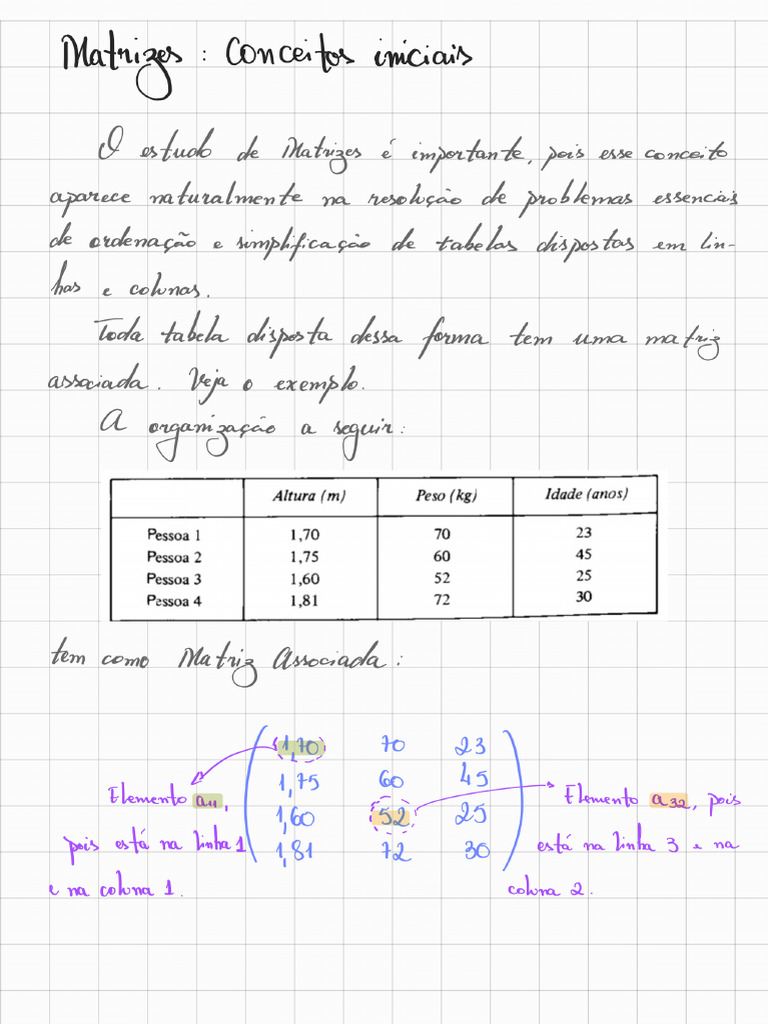 Matrizes: Conceitos iniciais
O estudo de Matrizes é importante, pois esse conceito
aparece naturalmente na resolução de problemas essenciais
de ordenação e simplificação de tabelas dispostas em lin-
has e colunas.
Toda tabela disposta dessa forma tem uma matriz
associada. Veja o exemplo.
A organização a seguir:
Altura (m) Peso (kg) Idade (anos)
Pessoa 1 1,70 70 23
Pessoa 2 1,75 60 45
Pessoa 3 1,60 52 25
Pessoa 4 1,81 72 30
tem como Matriz Associada:
1,70 70 23
1,75 60 45
1,60 52 25
1,81 72 30
Elemento a11,
pois está na linha 1
e na coluna 1.
Elemento a32, pois
está na linha 3 e na
coluna 2.